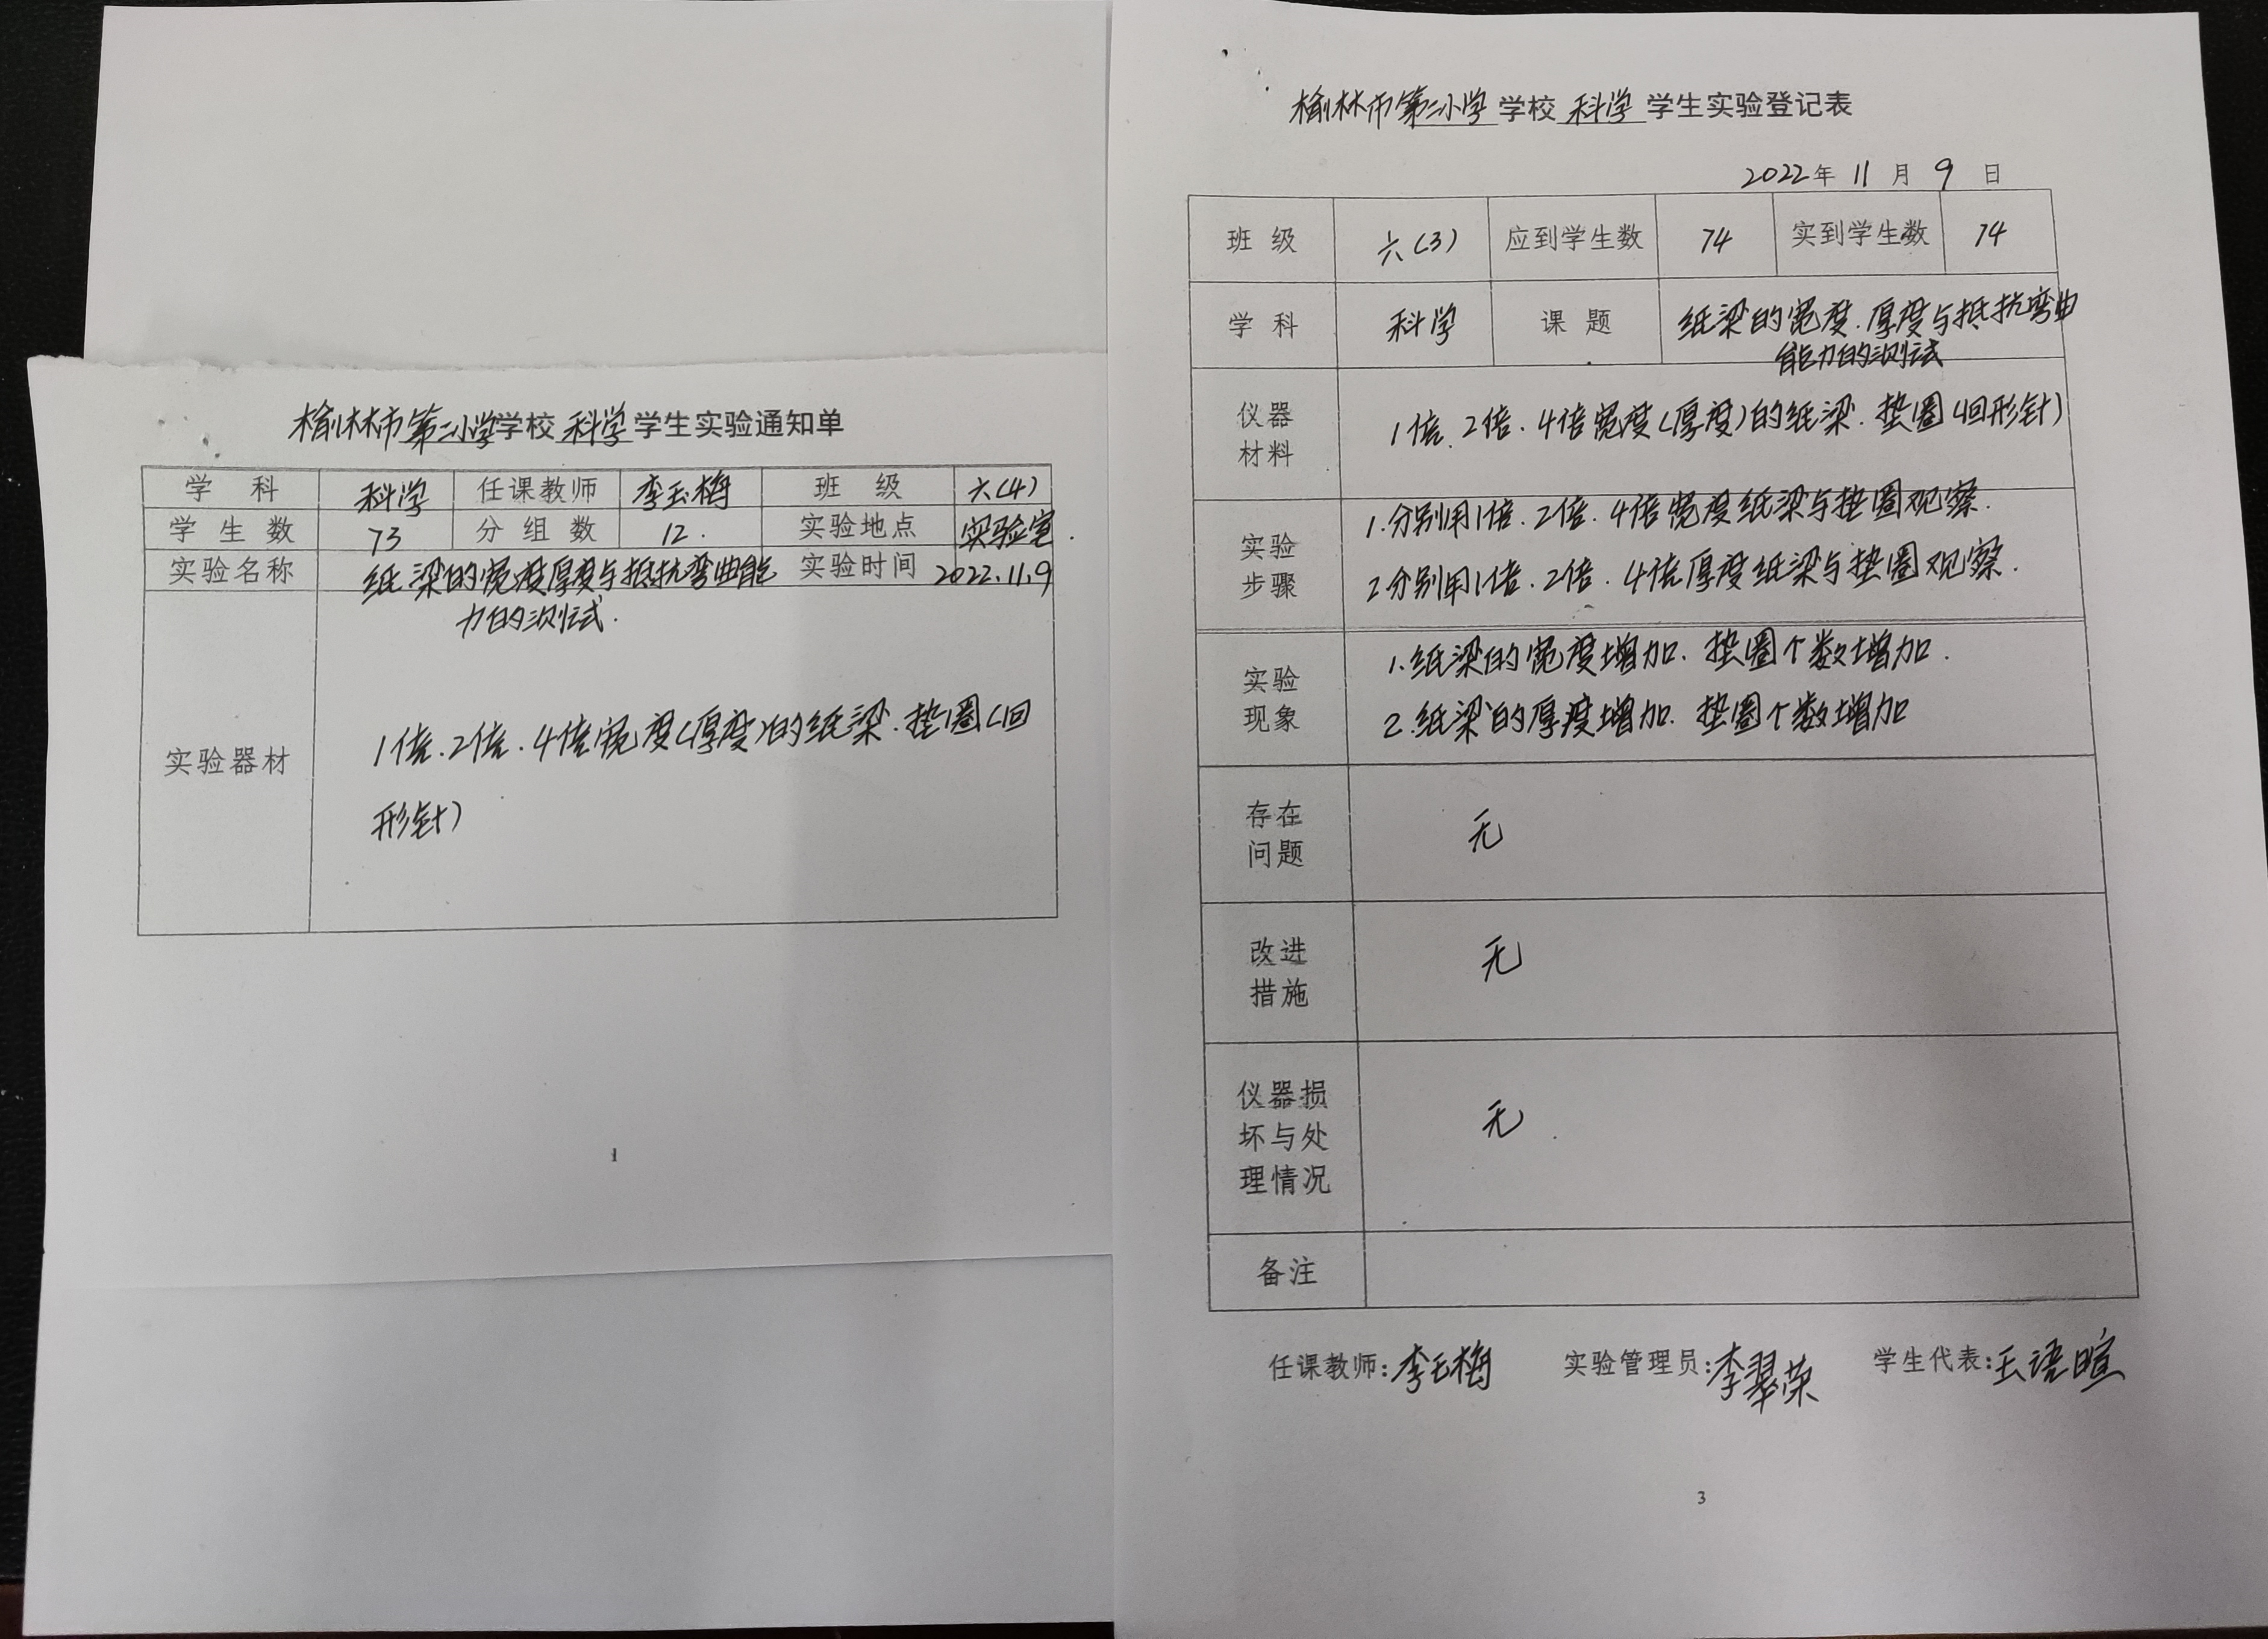 榆林市第二小学学校 科学 学生实验通知单
学 科 科学 任课教师 李玉梅 班 级 六(4)
学 生 数 73 分 组 数 12. 实验地点 实验室.
实验名称 纸梁的宽度厚度与抵抗弯曲能 实验时间 2022.11.9
力的测试.
实验器材
1倍.2倍.4倍宽度(厚度)的纸梁.垫圈(回
形针)
1
榆林市第二小学 学校 科学 学生实验登记表
2022年 11 月 9 日
班 级 六(3) 应到学生数 74 实到学生数 74
学 科 科学 课 题 纸梁的宽度.厚度与抵抗弯曲
能力的测试
仪器
材料
1倍.2倍.4倍宽度(厚度)的纸梁.垫圈(回形针)
实验
步骤
1.分别用1倍.2倍.4倍宽度纸梁与垫圈观察.
2.分别用1倍.2倍.4倍厚度纸梁与垫圈观察.
实验
现象
1.纸梁的宽度增加.垫圈个数增加.
2.纸梁的厚度增加.垫圈个数增加
存在
问题
无
改进
措施
无
仪器损
坏与处
理情况
无
备注
任课教师:李玉梅 实验管理员:李翠荣 学生代表:王语暄
3